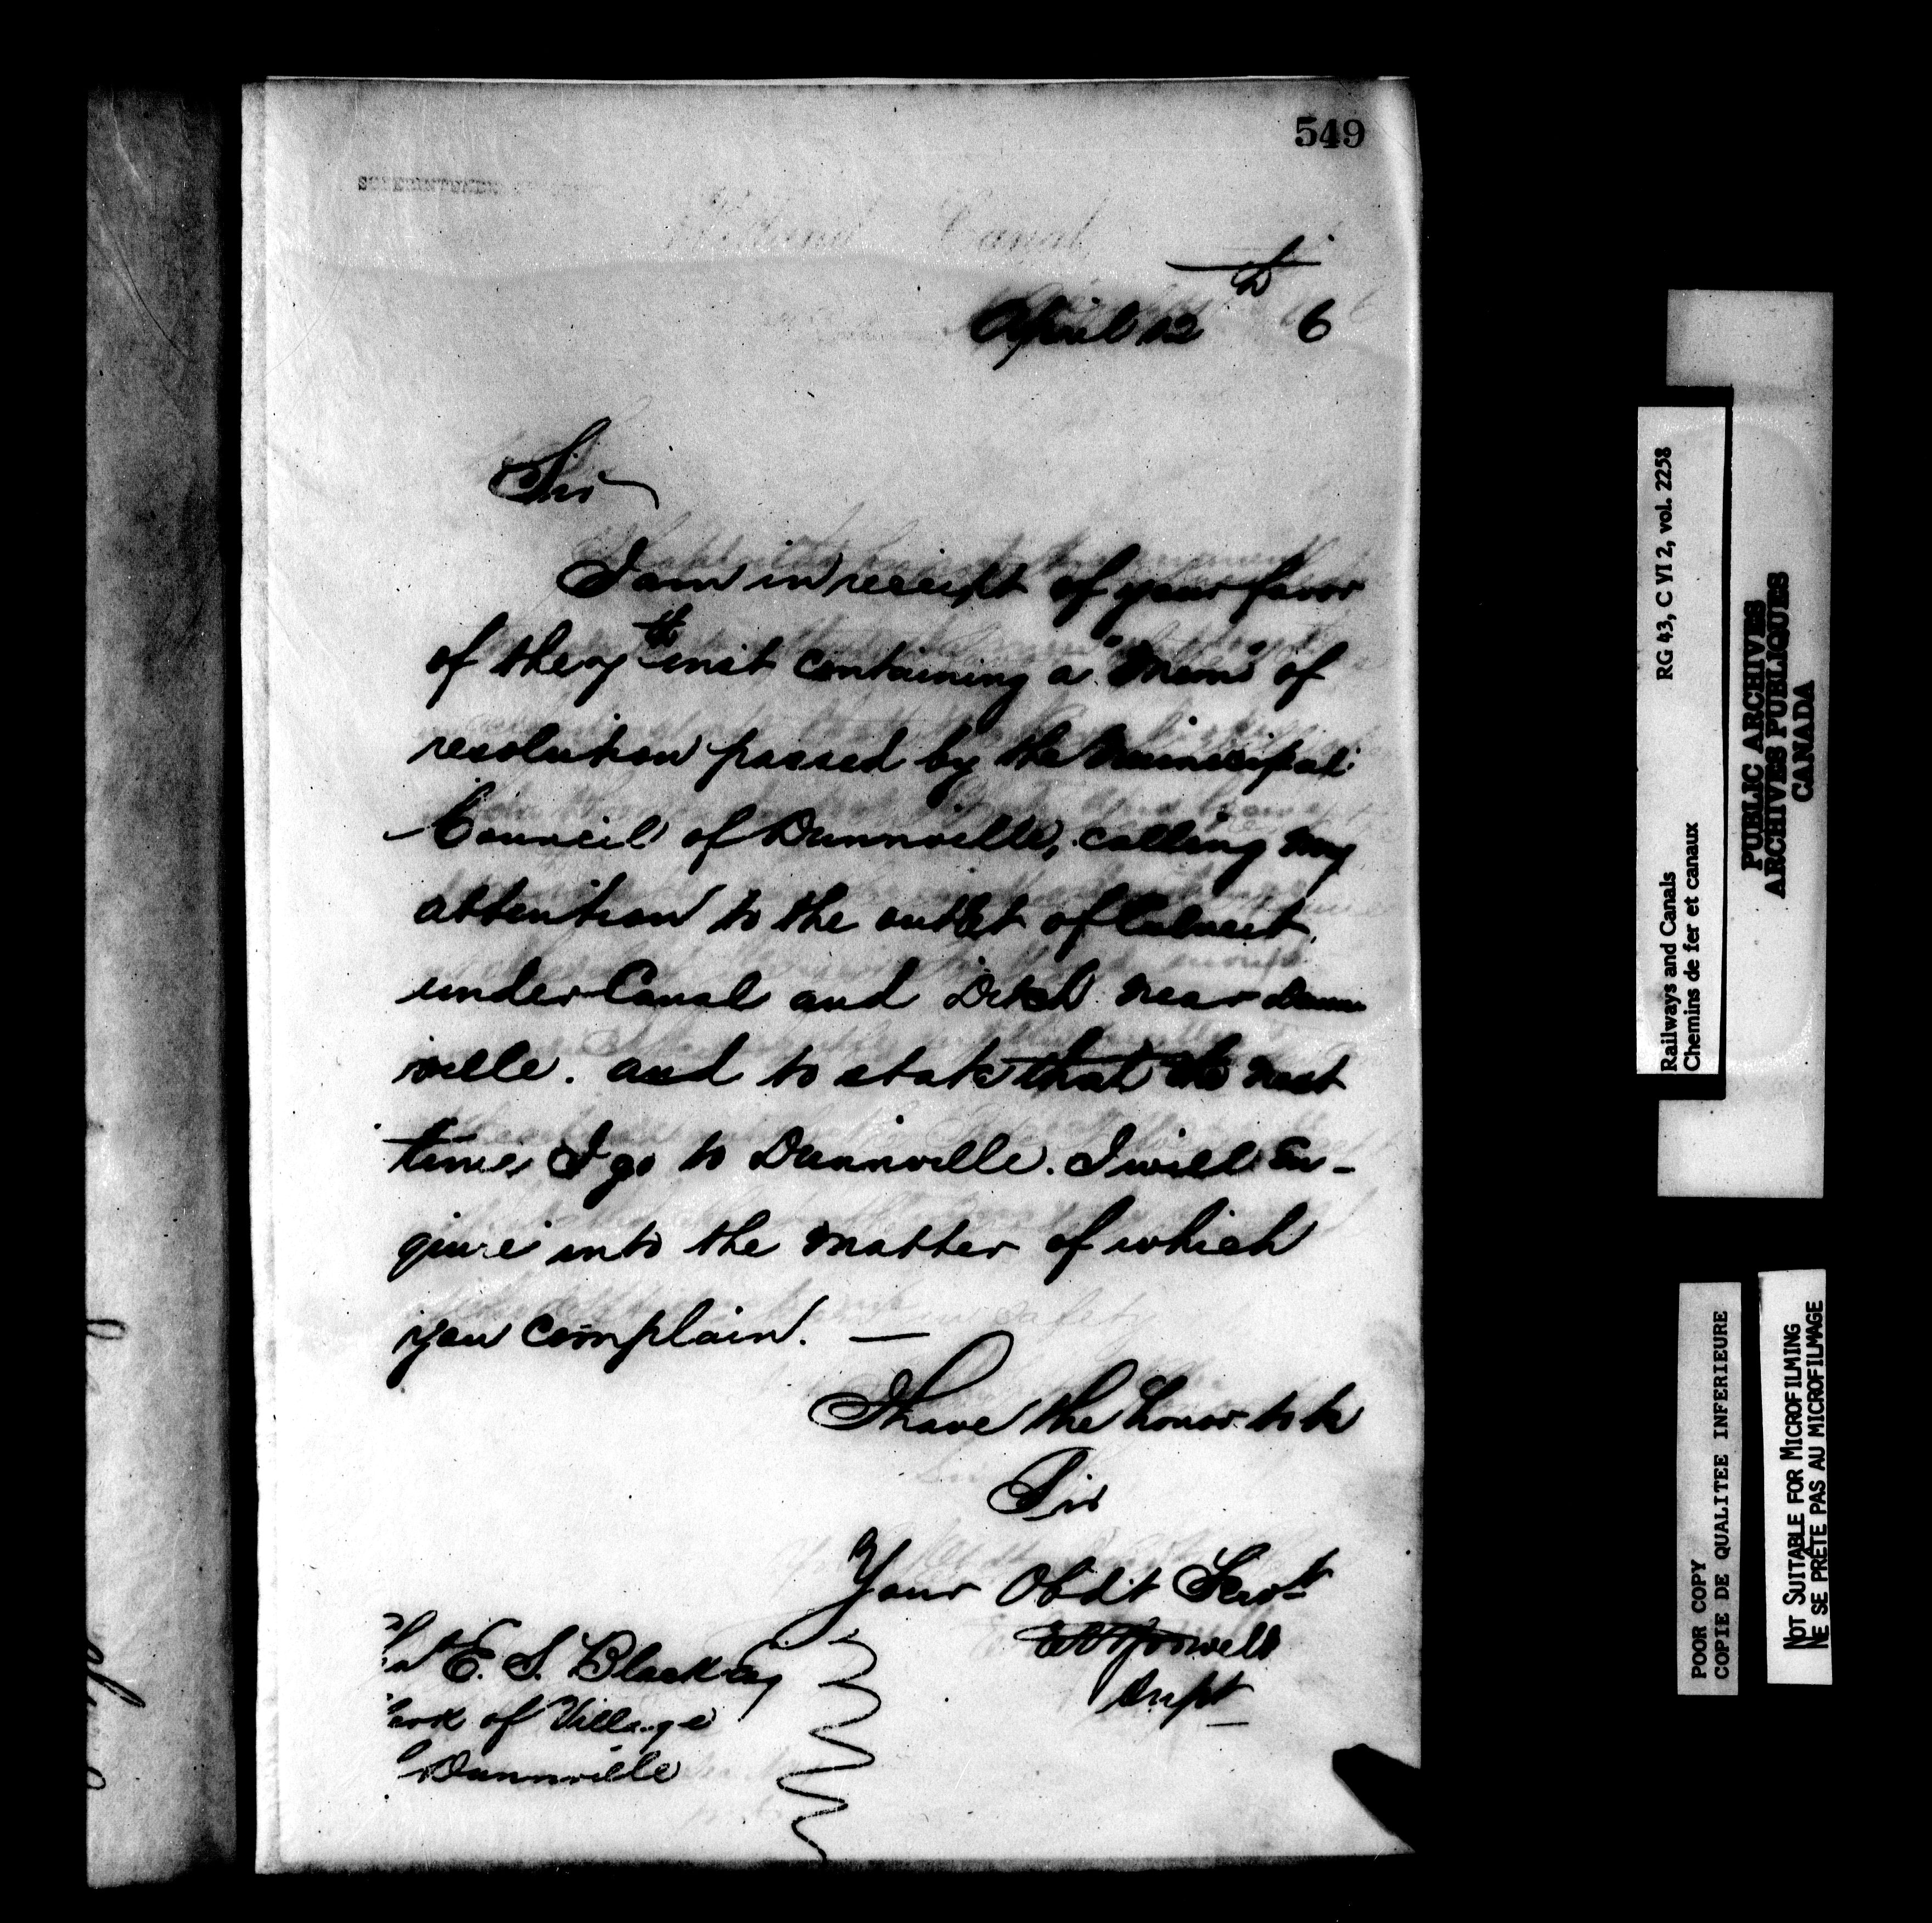 549
Welland Canal
April 12th 6
Sir
I am in receipt of your favor
of the 7th inst containing a "Memo" of
resolution passed by the Municipal
Council of Dunnville, calling my
attention to the outlet of Culvert
under Canal and Ditch near Dunn
ville. and to state that the next
time I go to Dunnville. I will En-
quire into the matter of which
you complain. —
I have the honor to be
Sir
Your Obdt Servt
Supt
E. S. Blackay
of Village
Dunnville
Railways and Canals RG 43, C VI 2, vol. 2258
Chemins de fer et canaux
PUBLIC ARCHIVES
ARCHIVES PUBLIQUES
CANADA
POOR COPY
COPIE DE QUALITEE INFERIEURE
NOT SUITABLE FOR MICROFILMING
NE SE PRÊTE PAS AU MICROFILMAGE